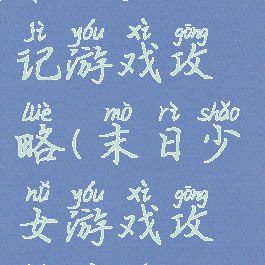 jì yóu xì gōng
记游戏攻
lüè mò rì shǎo
略(末日少
nǚ yóu xì gōng
女游戏攻